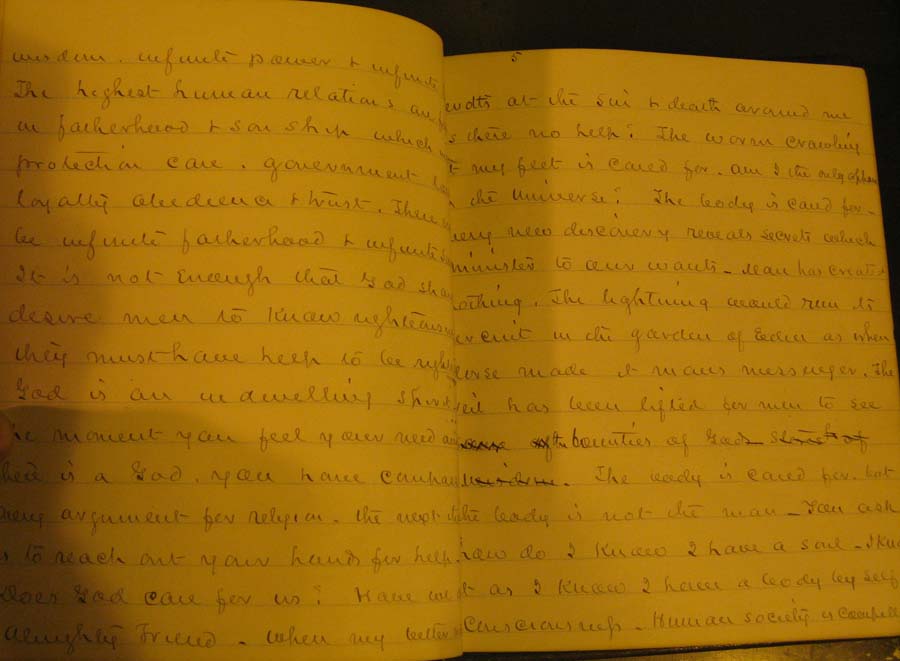 wisdom. infinite power & infinite
The highest human relations are
in fatherhood & son ship which
protection care. government
loyalty obedience & trust. There
be infinite fatherhood & infinite
It is not Enough that God
desire men to Know righteous
they must have help to be right
God is an indwelling Spirit
he moment you feel your need
here is a God. you have
argument for religion. the next
s to reach out your hands for help.
Does God care for us? Have we
almighty Friend. When my better
5
evolts at the sin & death around me
s there no help? The worm crawling
t my feet is cared for. am I the only orphan
the Universe? The body is cared for-
very new discovery reveals secrets which
minister to our wants- man has created
othing. The lightning would run its
circuit in the garden of Eden as when
orse made it mans messenger. The
veil has been lifted for men to see
bounties of God
The body is cared for. but
the body is not the man- You ask
how do I Know I have a soul- I Know
it as I Know I have a body by self
Consciousness- Human society is